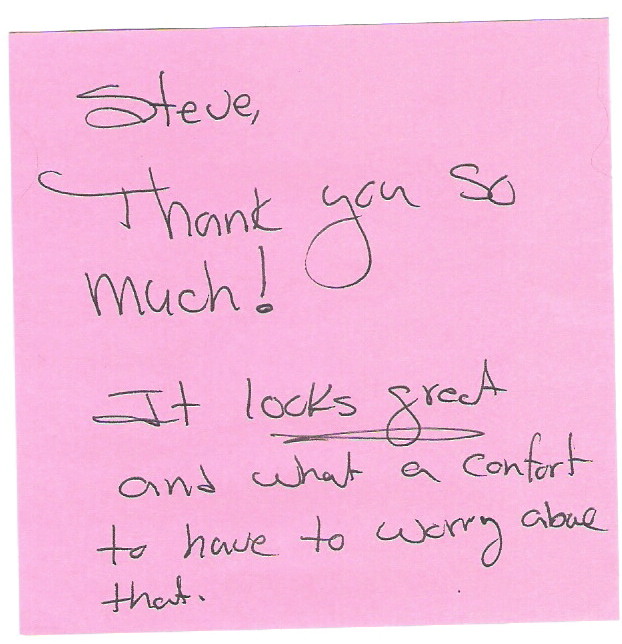 Steve,
Thank you so
much!
It looks great
and what a confort
to have to worry
that.